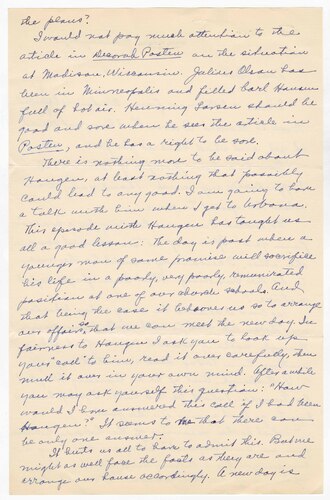 the plans?
I would not pay much attention to the
article in Decorah Posten on the situation
at Madison, Wisconsin. Julius Olson has
been in Minneapolis and filled Carl Hansen
full of hot air. Henning Larsen should be
good and sore when he sees the article in
Posten, and he has a right to be sore.
There is nothing more to be said about
Haugen, at least nothing that possibly
could lead to any good. I am going to have
a talk with him when I get to Urbana.
This episode with Haugen has taught us
all a good lesson: The day is past when a
younger man of some promise will sacrifice
his life in a poorly, very poorly, remunerated
position at one of our church schools. And
that being the case it behooves us so to arrange
our affairs that we can meet the new day. In
fairness to Haugen I ask you to look up
your "call" to him, read it over carefully, then
mull it over in your own mind. After awhile
you may ask yourself this question: "How
would I have answered this call if I had been
Haugen?" It seems to me that there can
be only one answer.
It hurts us all to have to admit this. But we
might as well face the facts as they are and
arrange our house accordingly. A new day is